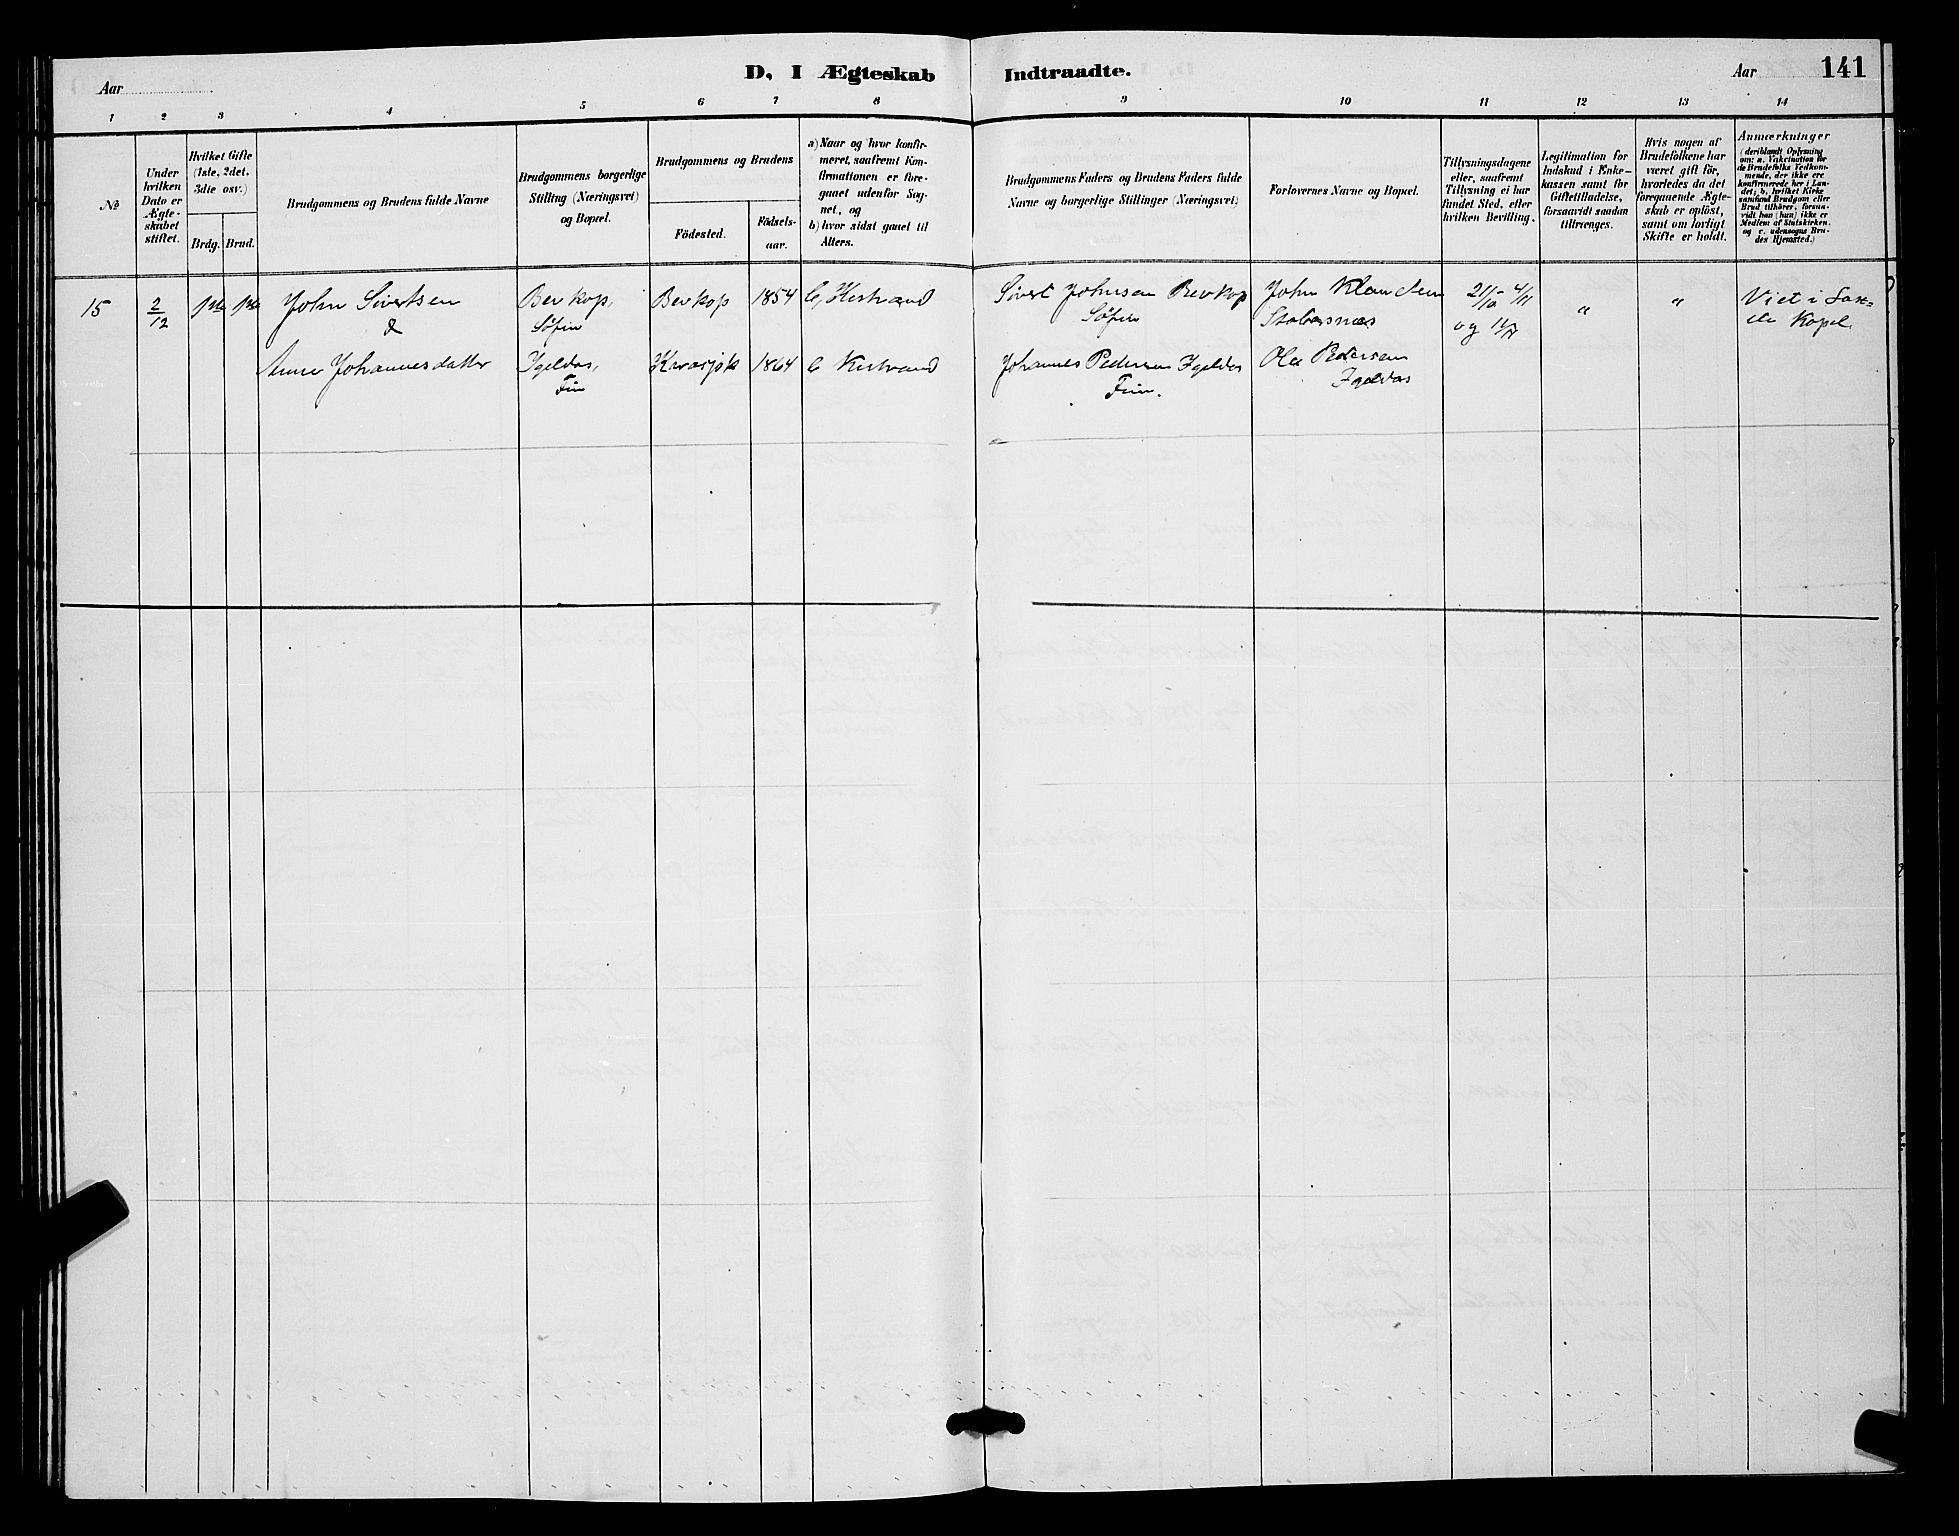 D, I Ægteskab Indtraadte.
Aar
Aar 141
1 2 3 4 5 6 7 8 9 10 11 12 13 14
№
Under
hvilken
Dato er
Ægte-
skabet
stiftet.
Hvilket Gifte
(1ste, 2det,
3die osv.)
Brdg. Brud.
Brudgommens og Brudens fulde Navne
Brudgommens borgerlige
Stilling (Næringsvei)
og Bopæl.
Brudgommens og Brudens
Födested.
Födsels-
aar.
a) Naar og hvor konfir-
meret, saafremt Kon-
firmationen er fore-
gaaet udenfor Sog-
net, og
b) hvor sidst gaaet til
Alters.
Brudgommens Faders og Brudens Faders fulde
Navne og borgerlige Stillinger (Næringsvei)
Forlovernes Navne og Bopæl.
Tillysningsdagene
eller, saafremt
Tillysning ei har
fundet Sted, efter
hvilken Bevilling.
Legitimation for
Indskud i Enke-
kassen samt for
Giftetilladelse,
forsaavidt saadan
tiltrænges.
Hvis nogen af
Brudefolkene har
været gift för,
hvorledes da det
foregaaende Ægte-
skab er oplöst,
samt om lovligt
Skifte er holdt.
Anmærkninger
(deriblandt Oplysning
om: a. Vakcination for
de Brudefolks Vedkom-
mende, der ikke ere
konfirmerede her i Lan-
det; b. hvilket Kirke
samfund Brudgom eller
Brud tilhörer, forsaa-
vidt han (hun) ikke er
Medlem af Statskirken,
og c. udensogns Bru-
des Hjemsted.)
15 2/12 1ste 1ste John Sivertsen Bevkop, Bevkop 1854 b, Kistrand Sivert Johnsen Bevkop John Klemetsen 21/10 - 4/11 " " Viet i
&
Söfin Söfin og 11/11 Kapel.
Anne Johannesdatter Igeldas, Karasjok 1864 b Kistrand Johannes Pedersen Igeldas Ole Pedersen
Fin Fin. Igeldas